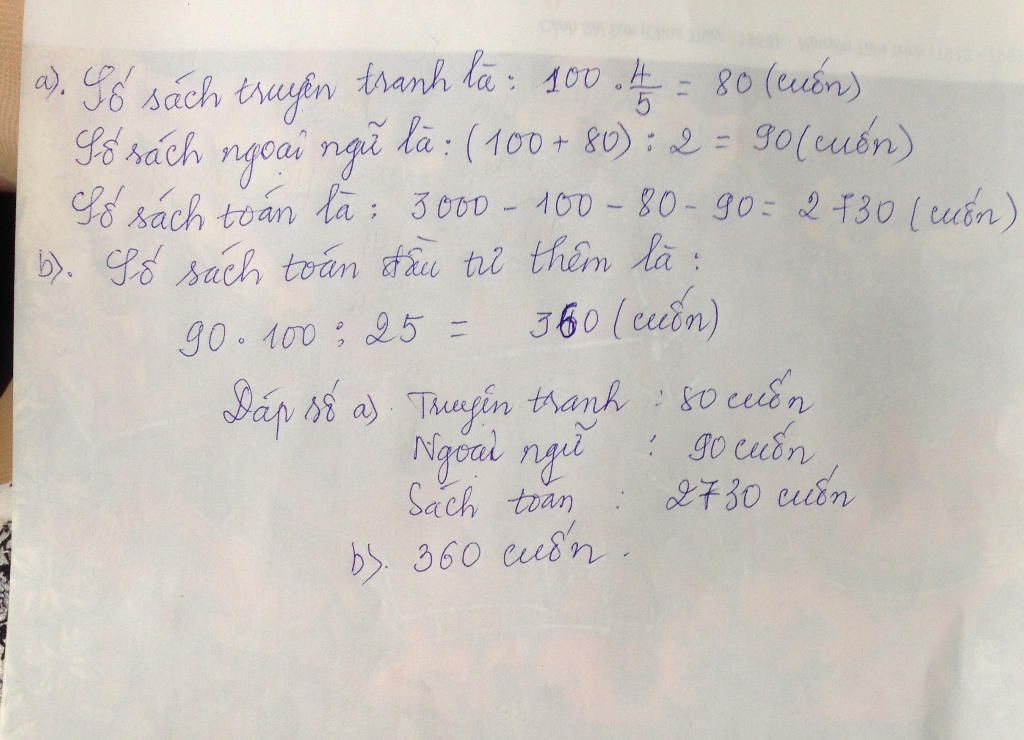 a). Số sách truyện tranh là: 100 . 4/5 = 80 (cuốn)
Số sách ngoại ngữ là: (100 + 80) : 2 = 90 (cuốn)
Số sách toán là: 3000 - 100 - 80 - 90 = 2730 (cuốn)
b). Số sách toán đầu tư thêm là:
90 . 100 : 25 = 360 (cuốn)
Đáp số a) Truyện tranh : 80 cuốn
Ngoại ngữ : 90 cuốn
Sách toán : 2730 cuốn
b). 360 cuốn.